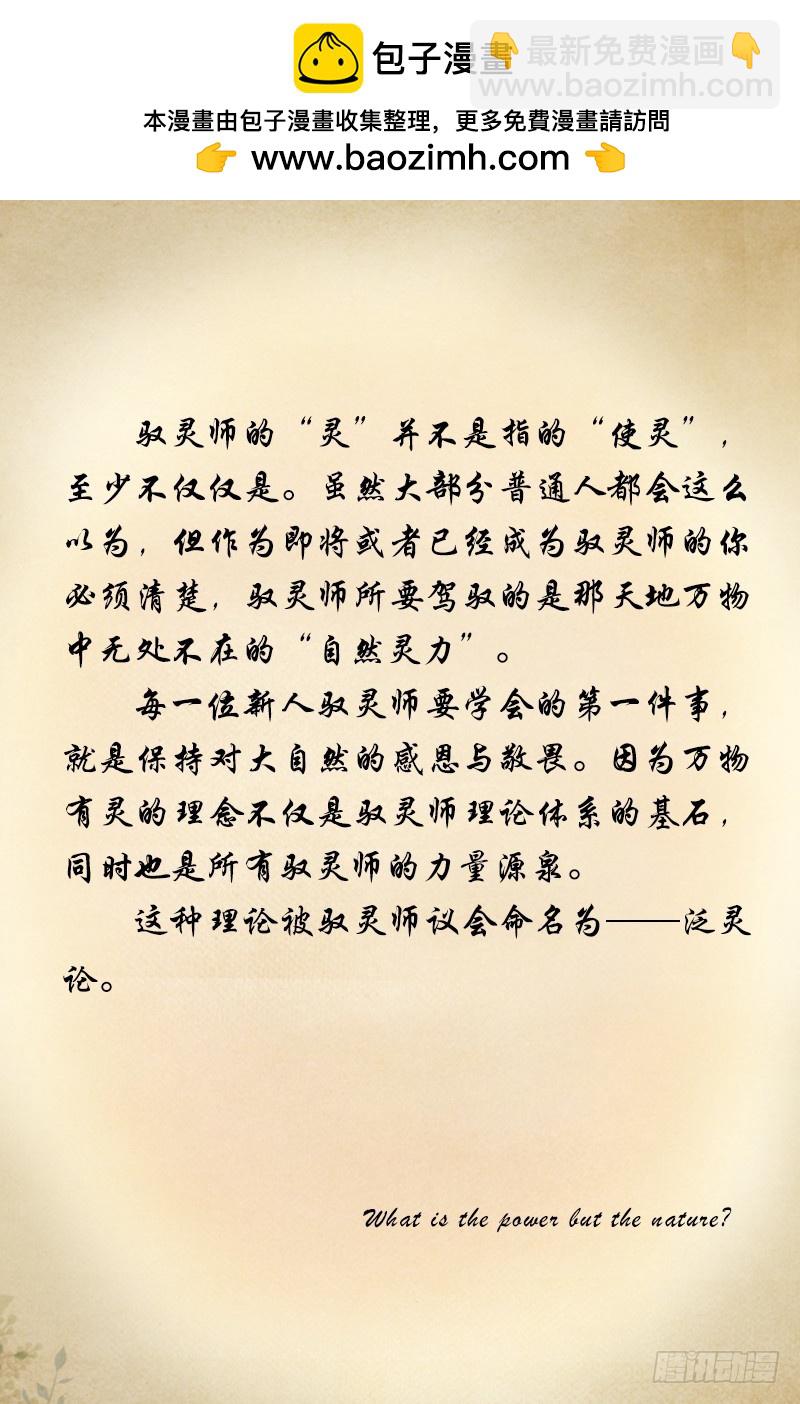 包子漫畫
👇最新免费漫画👇
www.baozimh.com
本漫畫由包子漫畫收集整理，更多免費漫畫請訪問
👉 www.baozimh.com 👈
驭灵师的“灵”并不是指的“使灵”，
至少不仅仅是。虽然大部分普通人都会这么
以为，但作为即将或者已经成为驭灵师的你
必须清楚，驭灵师所要驾驭的是那天地万物
中无处不在的“自然灵力”。
每一位新人驭灵师要学会的第一件事，
就是保持对大自然的感恩与敬畏。因为万物
有灵的理念不仅是驭灵师理论体系的基石，
同时也是所有驭灵师的力量源泉。
这种理论被驭灵师议会命名为——泛灵
论。
What is the power but the nature?
腾讯动漫